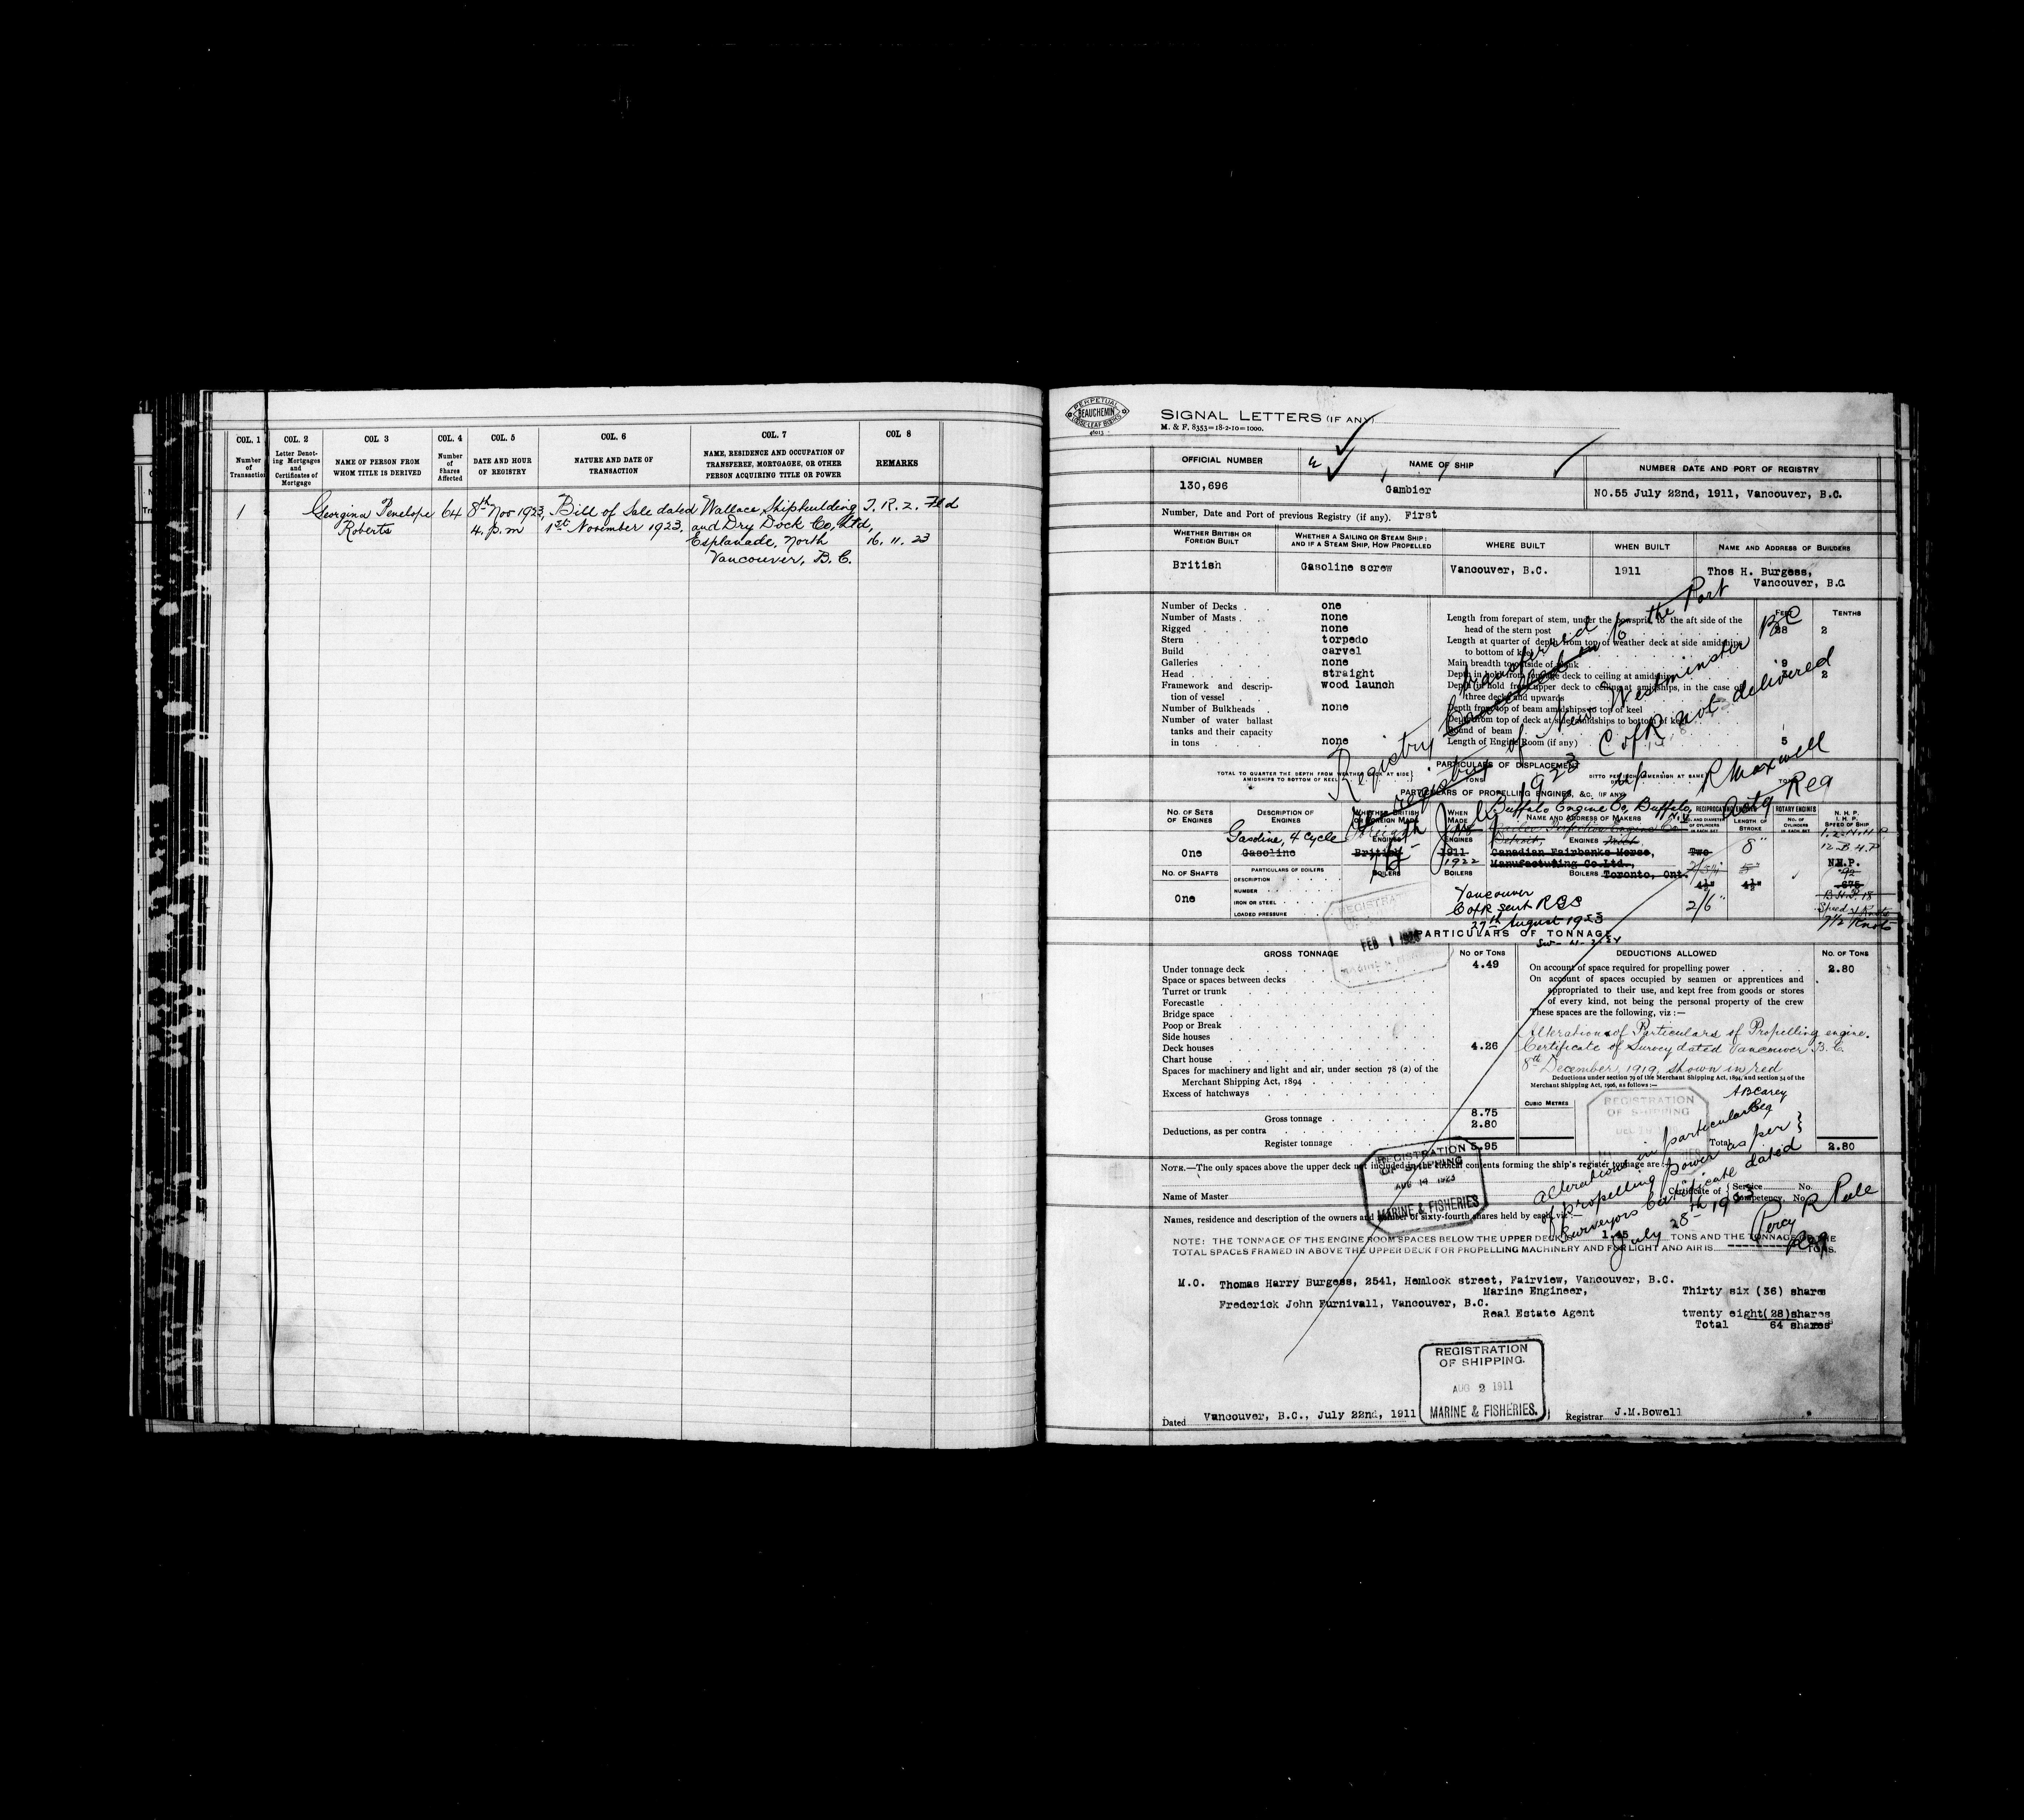 COL. 1
Number
of
Transaction
COL. 2
Letter Denot-
ing Mortgages
and
Certificates of
Mortgage
COL. 3
NAME OF PERSON FROM
WHOM TITLE IS DERIVED
COL. 4
Number
of
Shares
Affected
COL. 5
DATE AND HOUR
OF REGISTRY
COL. 6
NATURE AND DATE OF
TRANSACTION
COL. 7
NAME, RESIDENCE AND OCCUPATION OF
TRANSFEREE, MORTGAGEE, OR OTHER
PERSON ACQUIRING TITLE OR POWER
COL 8
REMARKS
1 Georgina Penelope 64 8th Nov 1923, Bill of Sale dated Wallace Shipbuilding T. R. 2.
Roberts 4. p.m 1st November 1923. and Dry Dock Co, Ltd,
Esplanade, North 16. 11. 23
Vancouver, B. C.
PERPETUAL
BEAUCHEMIN
LOOSE-LEAF BINDERS
SIGNAL LETTERS (IF ANY)
M. & F. 8353=18-2-10=1000.
OFFICIAL NUMBER
NAME OF SHIP
NUMBER DATE AND PORT OF REGISTRY
130,696
Gambier
NO.55 July 22nd, 1911, Vancouver, B.C.
Number, Date and Port of previous Registry (if any). First
WHETHER BRITISH OR
FOREIGN BUILT
WHETHER A SAILING OR STEAM SHIP:
AND IF A STEAM SHIP, HOW PROPELLED
WHERE BUILT
WHEN BUILT
NAME AND ADDRESS OF BUILDERS
British
Gasoline screw
Vancouver, B.C.
1911
Thos H. Burgess,
Vancouver, B.C
Number of Decks . . one
Number of Masts . none
Rigged . . . none
Stern . . . torpedo
Build . . . carvel
Galleries . . . none
Head . . . straight
Framework and descrip- wood launch
tion of vessel
Number of Bulkheads . none
Number of water ballast
tanks and their capacity
in tons . . none
FEET
TENTHS
Length from forepart of stem, under the bowsprit, to the aft side of the
head of the stern post 2
Length at quarter of depth from top of weather deck at side amidships
to bottom of keel
Main breadth to outside of plank 9
Depth in hold from tonnage deck to ceiling at amidships 2
Depth in hold from upper deck to ceiling at amidships, in the case of
three decks and upwards
Depth from top of beam amidships to top of keel
Depth from top of deck at side amidships to bottom of keel
Round of beam
Length of Engine Room (if any) 5
Registry transferred to the Port
of New Westminster BC
C of R not delivered
July 1923
R Maxwell
Actg Reg
PARTICULARS OF DISPLACEMENT
TOTAL TO QUARTER THE DEPTH FROM WEATHER DECK AT SIDE
AMIDSHIPS TO BOTTOM OF KEEL
TONS
PARTICULARS OF PROPELLING ENGINES, &C. (IF ANY)
NO. OF SETS
OF ENGINES
DESCRIPTION OF
ENGINES
WHETHER BRITISH
OR FOREIGN MADE
WHEN
MADE
NAME AND ADDRESS OF MAKERS
RECIPROCATING ENGINES
ROTARY ENGINES
LENGTH OF
STROKE
N. H. P.
I. H. P.
SPEED OF SHIP
Buffalo Engine Co, Buffalo, N.Y
Gasoline, 4 Cycle
8"
12 B.H.P
One Gasoline British 1911 Canadian Fairbanks Morse, Two
1922 Manufactuting Co.Ltd.,
Toronto, Ont.
N.H.P.
NO. OF SHAFTS
PARTICULARS OF BOILERS
DESCRIPTION
NUMBER
IRON OR STEEL
LOADED PRESSURE
BOILERS
One
4½"
4½"
.675
2/6"
7½ Knots
Vancouver
C of R sent RGS
27th August 1923
REGISTRAT
FEB 1
PARTICULARS OF TONNAGE
GROSS TONNAGE
NO OF TONS
DEDUCTIONS ALLOWED
NO. OF TONS
Under tonnage deck 4.49
Space or spaces between decks
Turret or trunk
Forecastle
Bridge space
Poop or Break
Side houses
Deck houses 4.26
Chart house
Spaces for machinery and light and air, under section 78 (2) of the
Merchant Shipping Act, 1894
Excess of hatchways
Gross tonnage 8.75
Deductions, as per contra 2.80
Register tonnage 5.95
On account of space required for propelling power 2.80
On account of spaces occupied by seamen or apprentices and
appropriated to their use, and kept free from goods or stores
of every kind, not being the personal property of the crew
These spaces are the following, viz :—
Alteration of Particulars of Propelling engine.
Certificate of Survey dated Vancouver B. C.
8th December, 1919, shown in red
Deductions under section 79 of the Merchant Shipping Act, 1894, and section 54 of the
Merchant Shipping Act, 1906, as follows :—
CUBIC METRES
REGISTRATION
OF SHIPPING
ABCarey
Reg
Total 2.80
Alterations in particulars
of propelling power as per
Surveyors Certificate dated
July 28th 1923
Percy R Pele
Reg
NOTE.—The only spaces above the upper deck not included in the cubical contents forming the ship's register tonnage are :—
REGISTRATION
OF SHIPPING
AUG 14 1923
MARINE & FISHERIES
Name of Master
Certificate of Service No.
Competency, No.
Names, residence and description of the owners and number of sixty-fourth shares held by each, viz :—
NOTE: THE TONNAGE OF THE ENGINE ROOM SPACES BELOW THE UPPER DECK IS 1.45 TONS AND THE TONNAGE OF THE
TOTAL SPACES FRAMED IN ABOVE THE UPPER DECK FOR PROPELLING MACHINERY AND FOR LIGHT AND AIR IS TONS.
M.O. Thomas Harry Burgess, 2541, Hemlock street, Fairview, Vancouver, B.C.
Marine Engineer, Thirty six (36) shares
Frederick John Furnivall, Vancouver, B.C.
Real Estate Agent twenty eight(28)shares
Total 64 shares
REGISTRATION
OF SHIPPING.
AUG 2 1911
MARINE & FISHERIES.
Dated Vancouver, B.C., July 22nd, 1911
Registrar J.M.Bowell